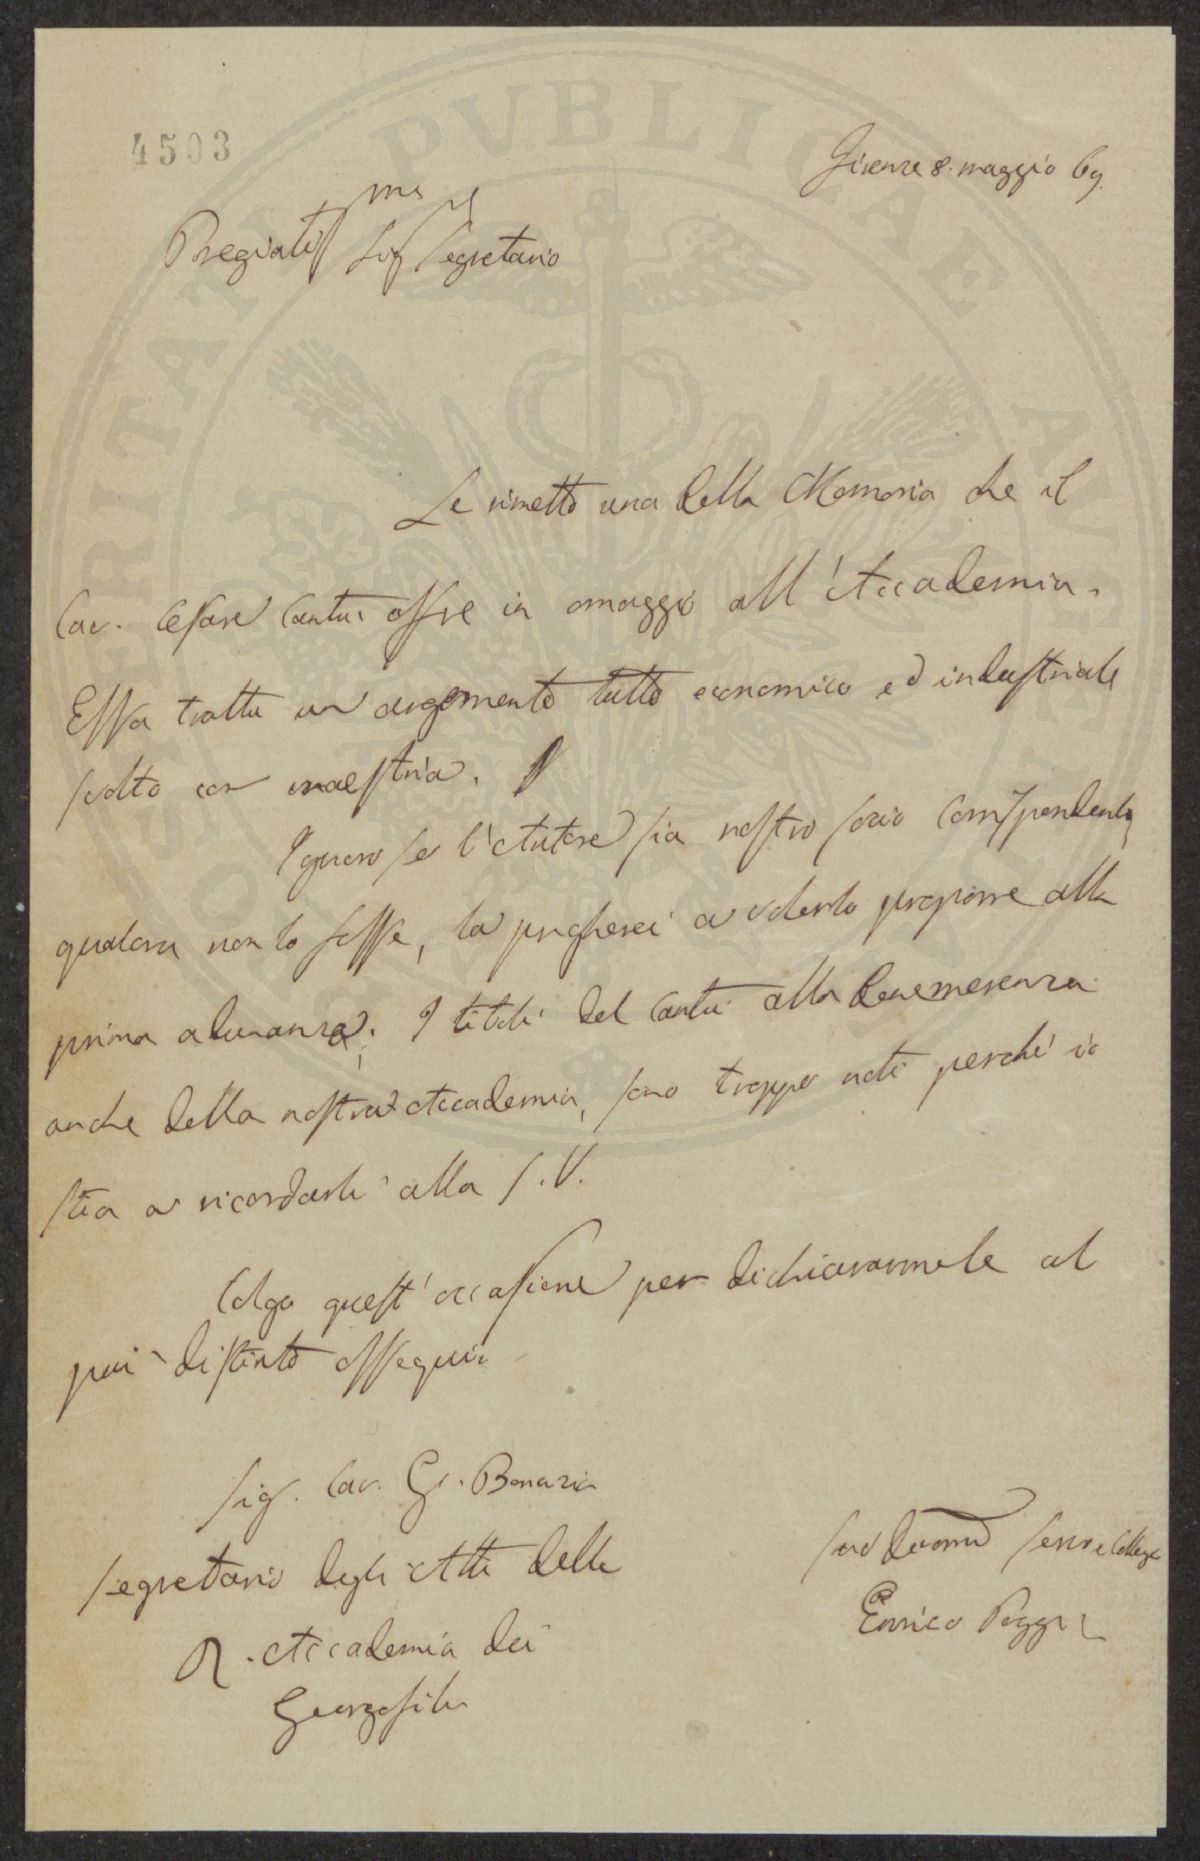 PROSPERITATI PVBLICAE AVGENDAE
4503
Firenze 8. maggio 69.
Pregiatiss.mo Sig.r Segretario
Le rimetto una bella Memoria che il
Cav. Cesare Cantù offre in omaggio all'Accademia.
Essa tratta un argomento tutto economico ed industriale
svolto con maestria.
Ignoro se l'Autore sia nostro socio corrispondente,
qualora non lo fosse, la pregherei a volerlo proporre alla
prima adunanza. I titoli del Cantù alla benemerenza
anche della nostra Accademia, sono troppo noti perché io
stia a ricordarli alla S.V.
Colgo quest'occasione per dichiararmele al
più distinto ossequio
Sig. Cav. G. Bonazia
Segretario degli Atti della
R. Accademia dei
Georgofili
Suo Devmo Servo e Collega
Enrico Poggi